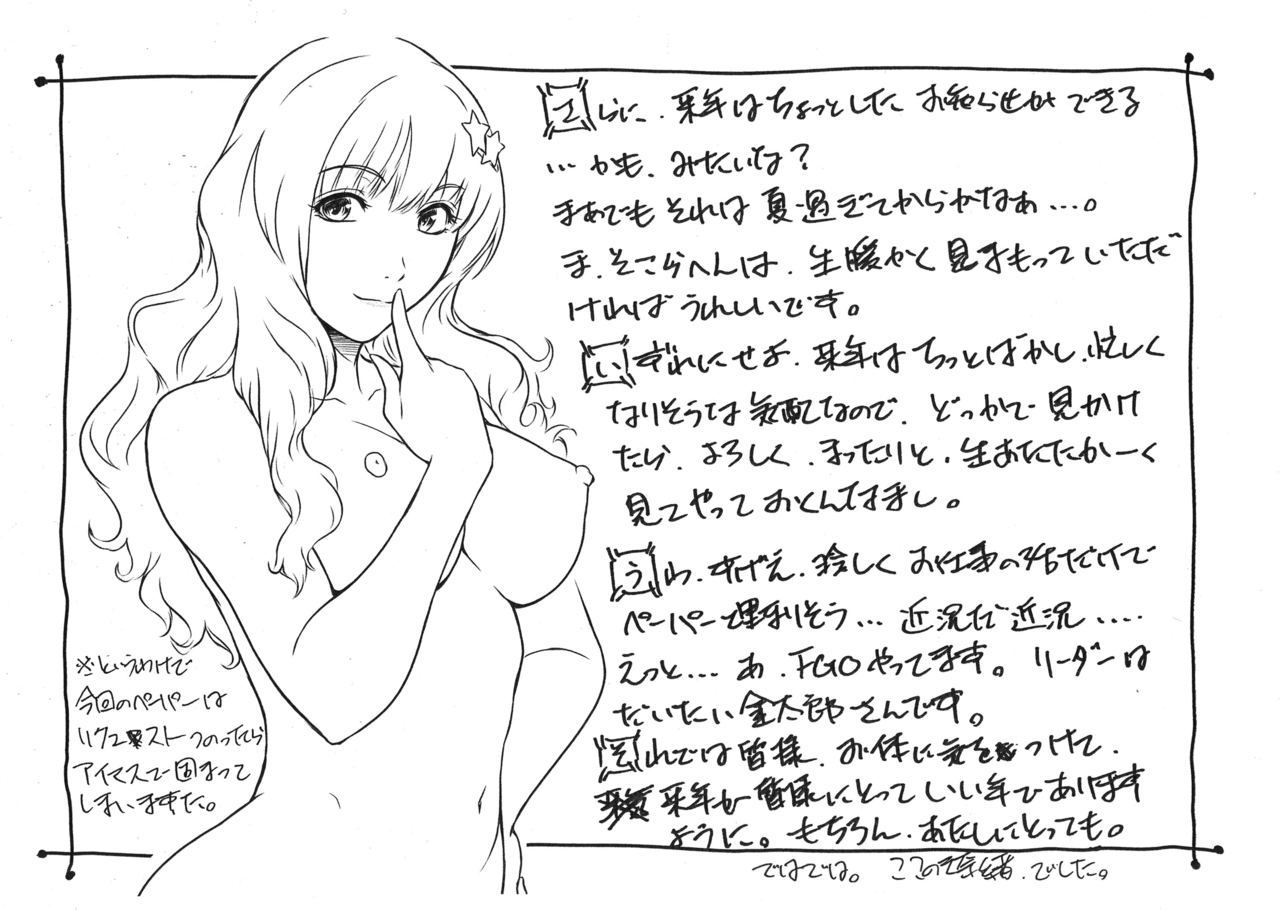 さらに、来年はちょっとしたお知らせができる
…かも、みたいな？
まあでもそれは夏過ぎてからかなぁ…。
ま、そこらへんは、生暖かく見まもっていただ
ければうれしいです。
いずれにせよ、来年はちっとばかし忙しく
なりそうな気配なので、どっかで見かけ
たら、よろしく、まったりと、生あたたかーく
見てやっておくんなまし。
うわ、すげえ、珍しくお仕事の話だけで
ペーパー埋まりそう…近況だ近況….
えっと…あ、FGOやってます。リーダーは
だいたい金太郎さんです。
それでは皆様、お体に気をつけて、
来年が皆様にとっていい年であります
ように。もちろん、あたしにとっても。
ではでは。ここのき奈緒、でした。
※というわけで
今回のペーパーは
リクエストつのったら
アイマスで固まって
しまいますた。